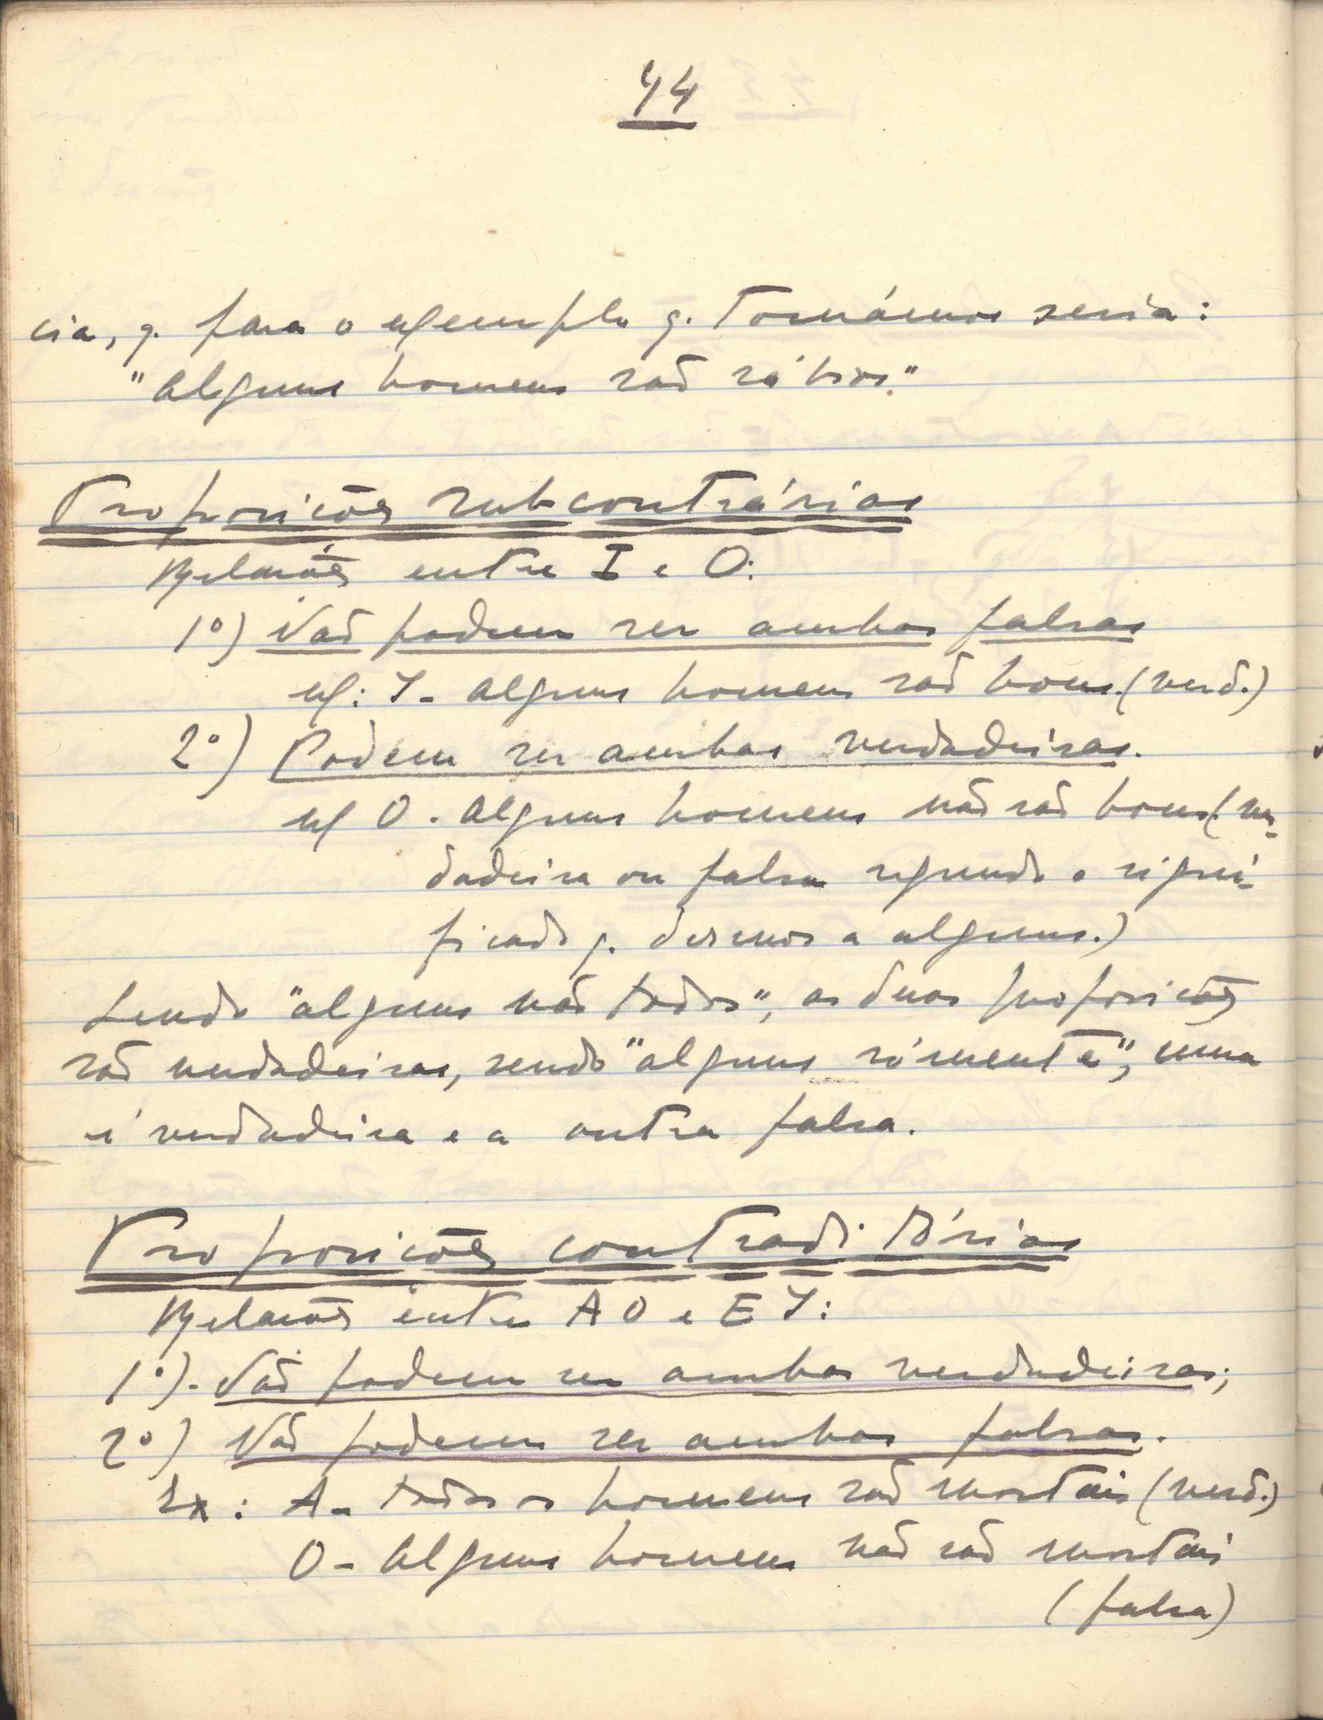 44
cia, q. para o exemplo q. tomámos seria:
"Alguns homens são sábios."
Proposições subcontrárias
Relações entre I e O:
1º) Não podem ser ambas falsas
ex: I - Alguns homens são bons (verd.)
2º) Podem ser ambas verdadeiras.
ex O - Alguns homens não são bons (ver-
dadeira ou falsa segundo o signi-
ficado q. dermos a alguns.)
Sendo "alguns não todos", as duas proposições
são verdadeiras, sendo "alguns sòmente", uma
é verdadeira e a outra falsa.
Proposições contraditórias
Relações entre A O e E I:
1º) - Não podem ser ambas verdadeiras;
2º) Não podem ser ambas falsas.
Ex: A - todos os homens são mortais (verd.)
O - Alguns homens não são mortais
(falsa)